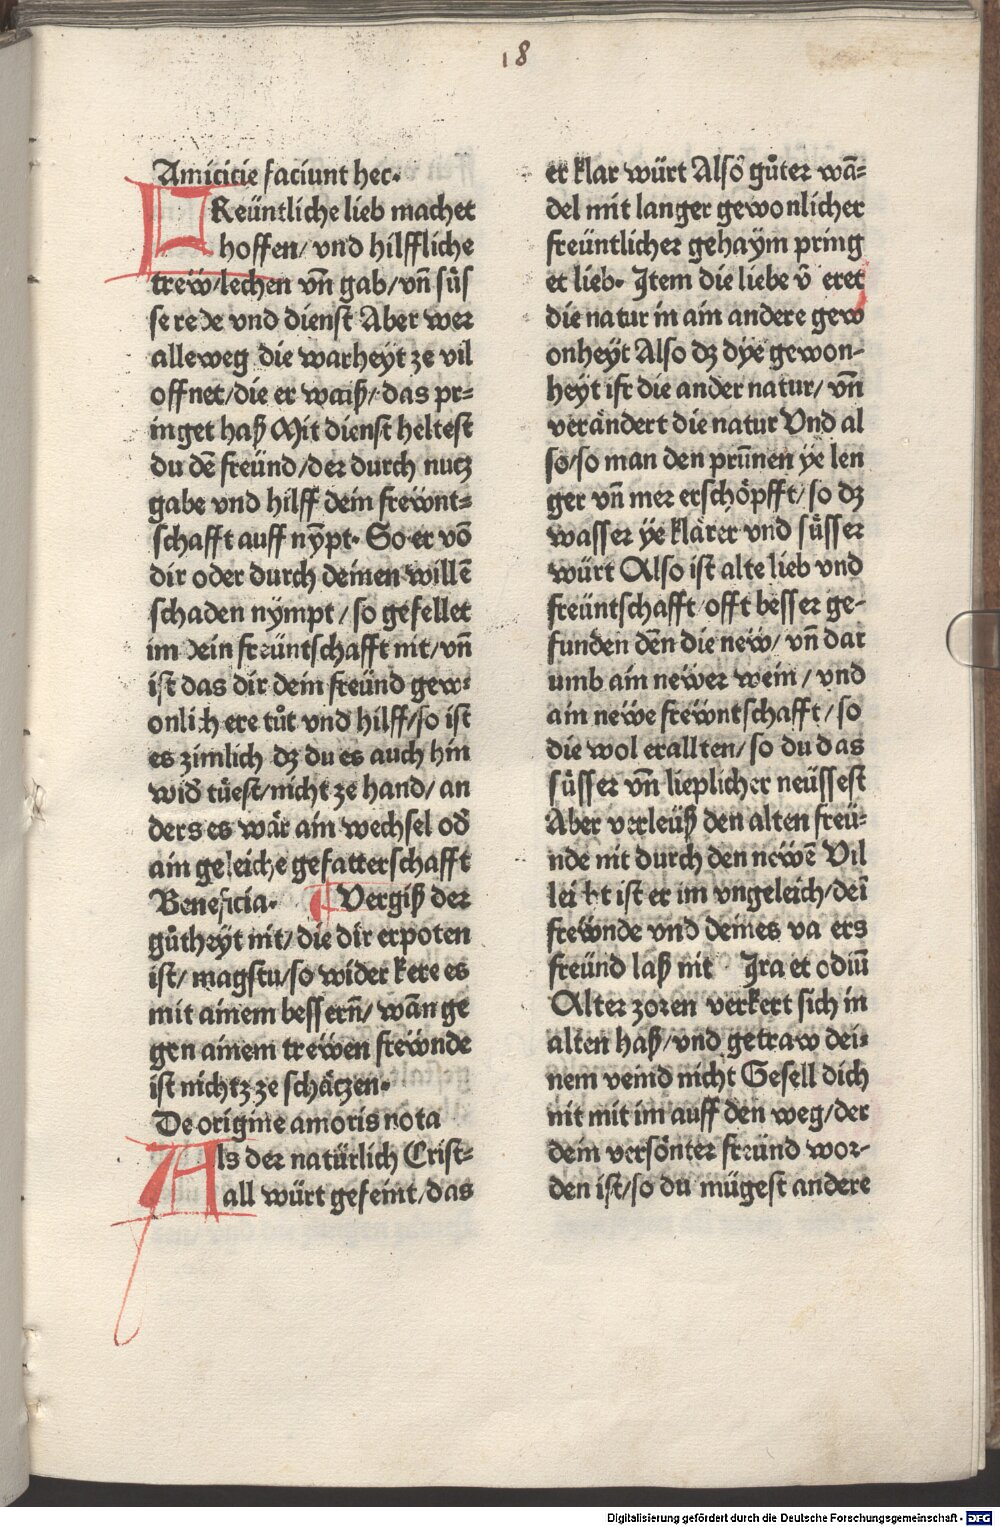 18
Amicicie faciunt hec·
FReüntliche lieb machet
hoffen/ vnd hilffliche
trew/lechen vñ gab/vñ süs
se rede vnd dienst Aber wer
alleweg die warheyt ze vil
offnet/die er waiß/ das pr⸗
inget haß Mit dienst heltest
du dē freünd/der durch nutz
gabe vnd hilff dein frewnt⸗
schafft auff nӯpt· So er vō
dir oder durch deinen willē
schaden nympt/so gefellet
im dein freüntschafft nit/vñ
ist das dir dein freünd gew⸗
onlich ere tůt vnd hilff/so ist
es zimlich dz du es auch hin
wid̄ tůest/nicht ze hand/ an
ders es wär ain wechsel od̄
ain geleiche gefatterschafft
Beneficia· ¶ Vergiß der
gůtheyt nit/ die dir erpoten
ist/ magstu/so wider kere es
mit ainem bessern̄/ wān ge
gen ainem trewen frewnde
ist nichtz ze schätzen·
De origine amoris nota
Als der natürlich Crist⸗
all würt gefeint/das
er klar würt Also güter wā⸗
del mit langer gewonlicher
freüntlicher gehaym pring
et lieb· Item die liebe v̄ eret
die natur in ain andere gew
onheyt Also dz dye gewon-
heyt ist die ander natur/ vñ
verändert die natur Vnd al
so/so man den prūnen ye len
ger vñ mer erschöpfft/so dz
wasser ye klarer vnd süsser
würt Also ist alte lieb vnd
freüntschafft/offt besser ge-
funden dēn die new/ vñ dar
umb ain newer wein/ vnd
ain newe frewntschafft/so
die wol erallten/so du das
süsser vñ lieplicher neüssest
Aber verleüß den alten freü⸗
nde nit durch den newē Vil
leicht ist er im vngeleich/deī
frewnde vnd deines va ers
freünd laß nit Ira et odiū
Alter zoren verkert sich in
alten haß/vnd getraw dei⸗
nem veind nicht Gesell dich
nit mit im auff den weg/der
dein versönter freünd wor-
den ist/so du mügest andere
Digitalisierung gefördert durch die Deutsche Forschungsgemeinschaft - DFG